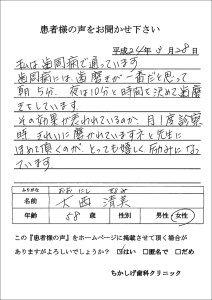 患者様の声をお聞かせ下さい
平成24年5月28日
私は歯周病で通っています
歯周病には、歯磨きが一番だと思って
朝5分、夜は10分と時間を決めて歯磨
きをしています
その効果が表われているのか、月1度診察
時、きれいに磨かれていますネと先生に
ほめて頂くのが、とっても嬉しく励みにな
っています
ふりがな おおにし きよみ
名前 大西 清美
年齢 58 歳 性別 男性 女性
この『患者様の声』をホームページに掲載させて頂く場合が
ありますがよろしいでしょうか? ☑はい □匿名で □だめ
ちかしげ歯科クリニック